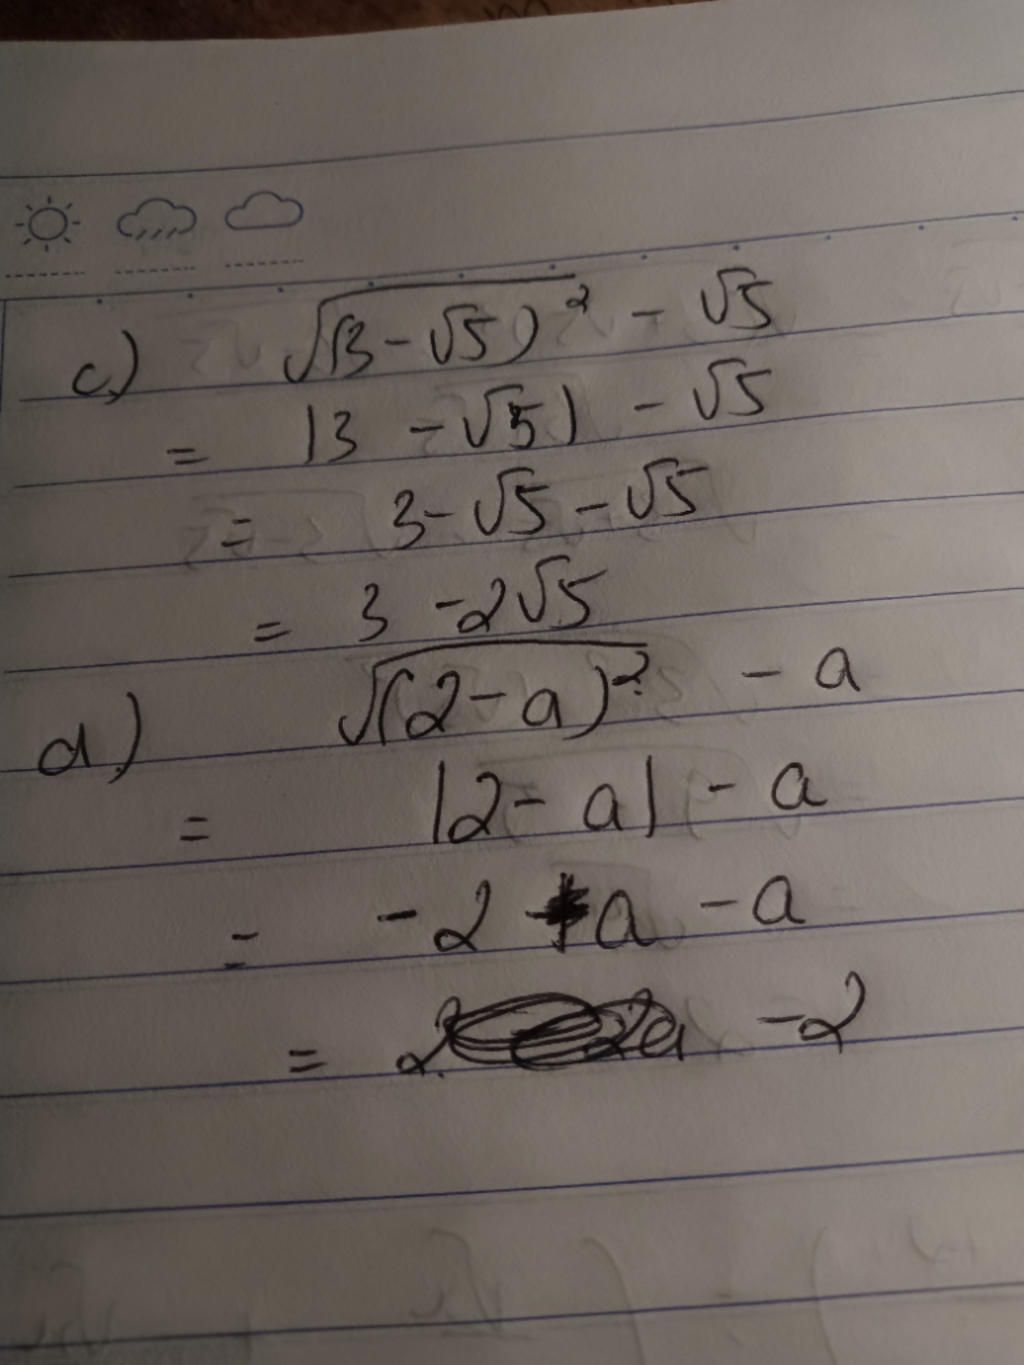 c.) √(3-√5)² - √5
= |3 -√5| - √5
= 3-√5-√5
= 3 -2√5
d.) √(2-a)² - a
= |2-a| - a
= -2 +a -a
= -2